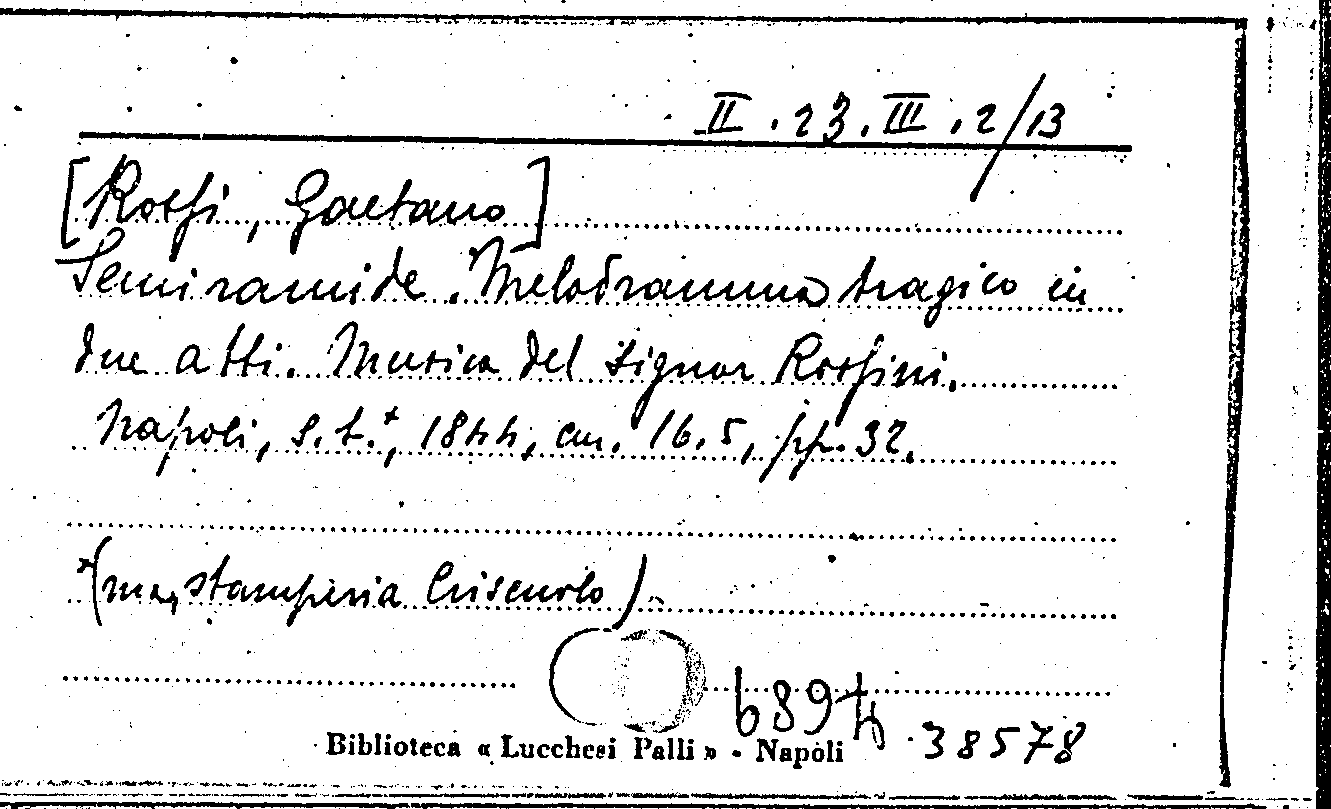 II.23.III.2/13
[Rossi, Gaetano]
Semiramide. Melodramma tragico in
due atti. Musica del signor Rossini.
Napoli, s.t.*, 1844, cm. 16.5, pp. 32.
*(ma, stamperia Criscuolo).
6894
Biblioteca « Lucchesi Palli » - Napoli 38578